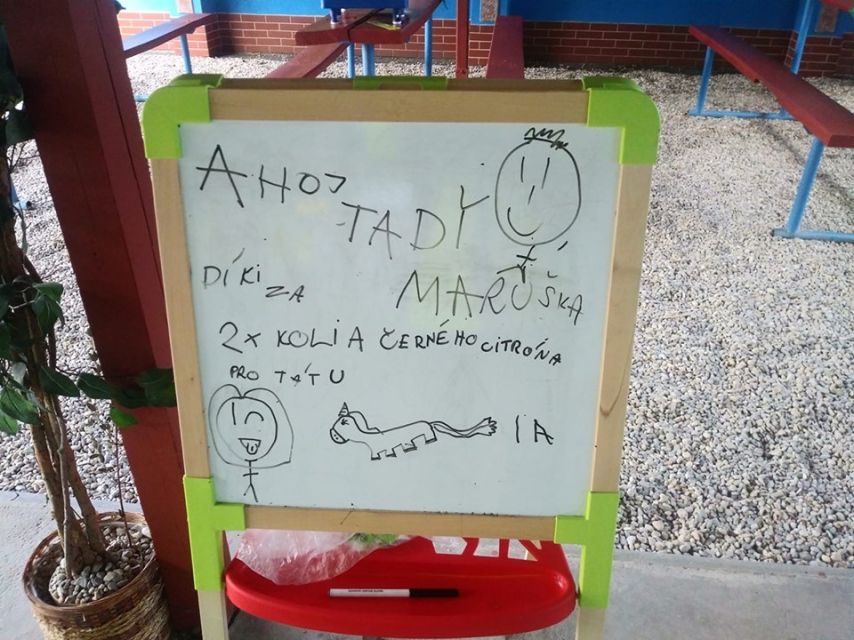 AHOJ
TADY
DÍKI ZA
MARŮŠKA
2x KOLI A ČERNÉHO CITRÓNA
PRO TÁTU
IA